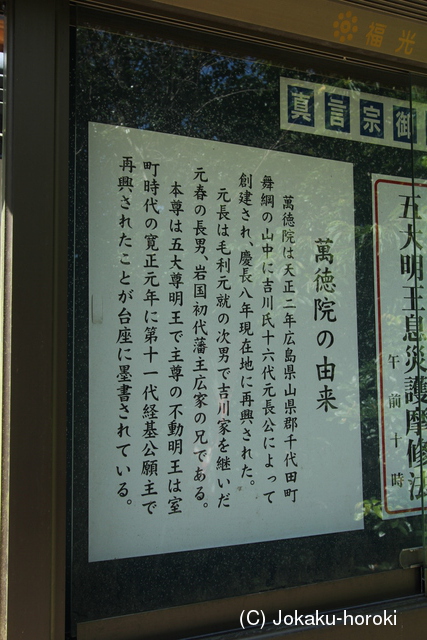 福光
真言宗御
五大明王息災護摩修法
午前十時
萬徳院の由来
萬徳院は天正二年広島県山県郡千代田町
舞綱の山中に吉川氏十六代元長公によって
創建され、慶長八年現在地に再興された。
元長は毛利元就の次男で吉川家を継いだ
元春の長男、岩国初代藩主広家の兄である。
本尊は五大尊明王で主尊の不動明王は室
町時代の寛正元年に第十一代経基公願主で
再興されたことが台座に墨書されている。
(C) Jokaku-horoki